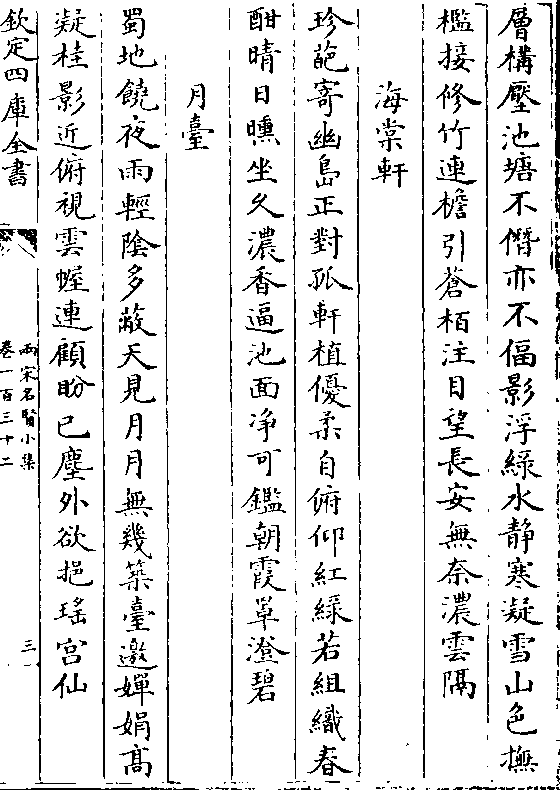 層構壓池塘不僭亦不偪影浮綠水静寒凝雪山色撫
檻接修竹連檐引蒼栢注目望長安無奈濃雲隔
海棠軒
珍葩寄幽島正對孤軒植優柔自俯仰紅綠若組織春
酣晴日曛坐久濃香逼池面净可鑑朝霞罩澄碧
月臺
蜀地饒夜雨輕陰多蔽天見月月無幾築臺邀嬋娟髙
凝桂影近俯視雲幄連顧盼已塵外欲挹瑤宫仙
欽定四庫全書
兩宋名賢小集
卷一百三十二
三